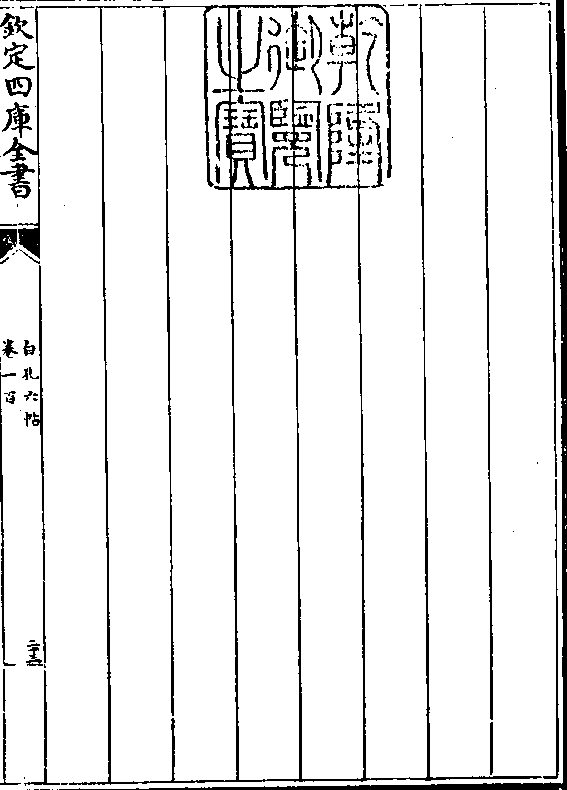 乾隆
御覽
之寶
欽定四庫全書
白孔六帖
卷一百
二十三